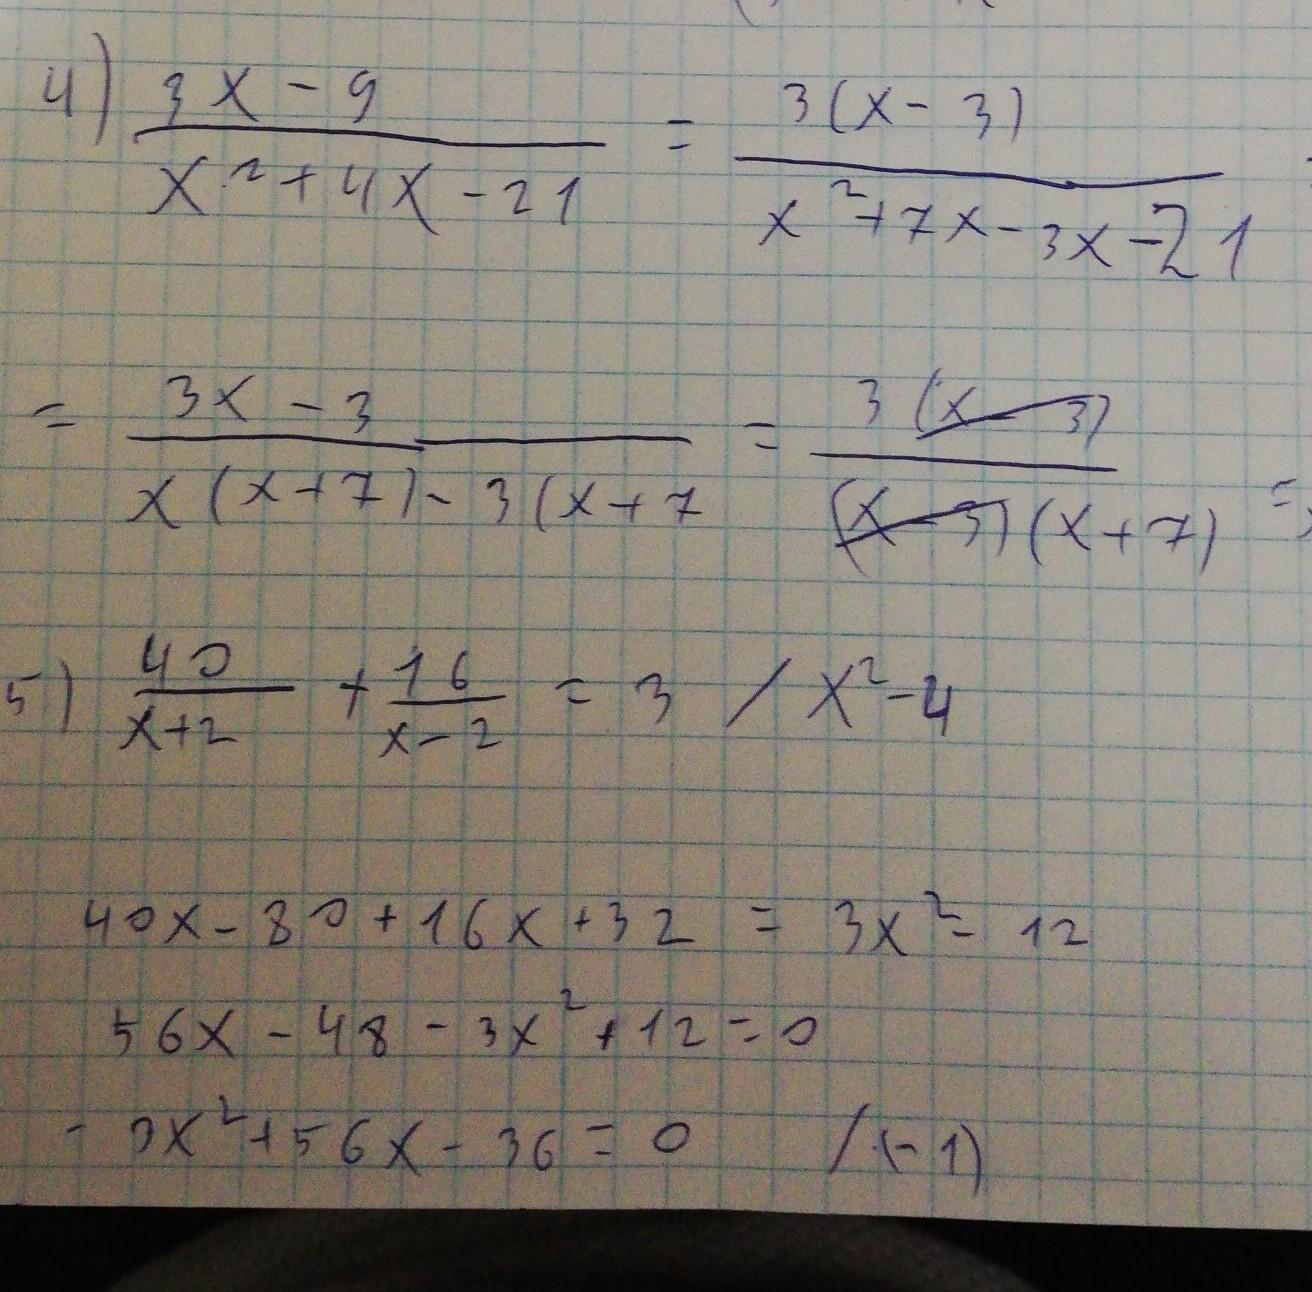 4) (3x - 9)/(x² + 4x - 21) = 3(x - 3)/(x² + 7x - 3x - 21)
= (3x - 3)/(x(x+7) - 3(x+7) = 3(x - 3)/((x - 3)(x+7)) =
5) 40/(x+2) + 16/(x-2) = 3 / x² - 4
40x - 80 + 16x + 32 = 3x² - 12
56x - 48 - 3x² + 12 = 0
- 3x² + 56x - 36 = 0 / (-1)